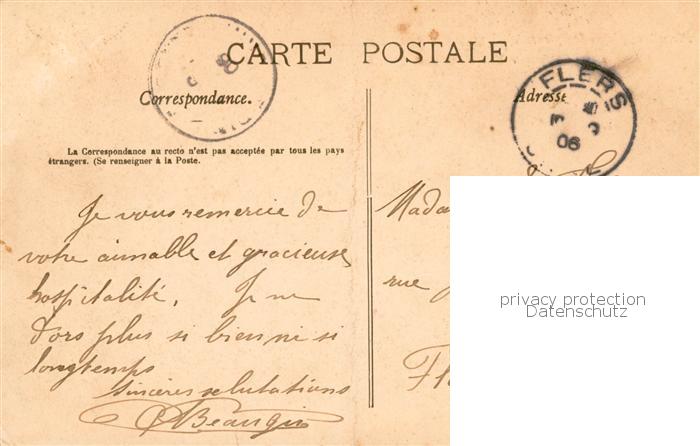 CARTE POSTALE
Correspondance.
Adresse
FLERS
06
La Correspondance au recto n'est pas acceptée par tous les pays
étrangers. (Se renseigner à la Poste.
Je vous remercie de
votre aimable et gracieuse
hospitalité. Je ne
dors plus si bien ni si
longtemps
Sincères salutations
Mada
rue
Fl
privacy protection
Datenschutz